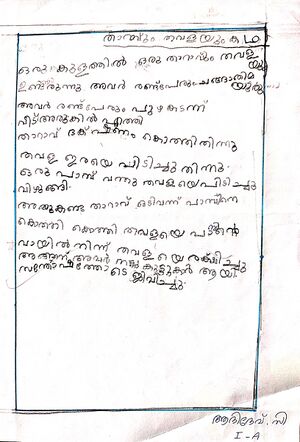 താറാവും തവളയും കഥ
ഒരു കുളത്തിൽ ഒരു താറാവും തവളയും
ഉണ്ടായിരുന്നു അവർ രണ്ട്പേരും ചങ്ങാതിമ
അവർ രണ്ട്പേരും പുഴകടന്ന്
വീട്അരുകിൽ എത്തി
താറാവ് ഭക്ഷണം കൊത്തിതിന്നു
തവള ഇരയെ പിടിച്ചു തിന്നു.
ഒരു പാമ്പ് വന്നു തവളയെപിടിച്ചു
വിഴുങ്ങി.
അതുകണ്ട താറാവ് ഓടിവന്ന് പാമ്പിനെ
കൊത്തി കൊത്തി തവളയെ പാമ്പിന്റെ
വായിൽ നിന്ന് തവളയെ രക്ഷിച്ചു
അങ്ങനെ അവർ നല്ല കൂട്ടുകാർ ആയി
സന്തോഷത്തോടെ ജീവിച്ചു.
ആദിദേവ്. സി
I-A